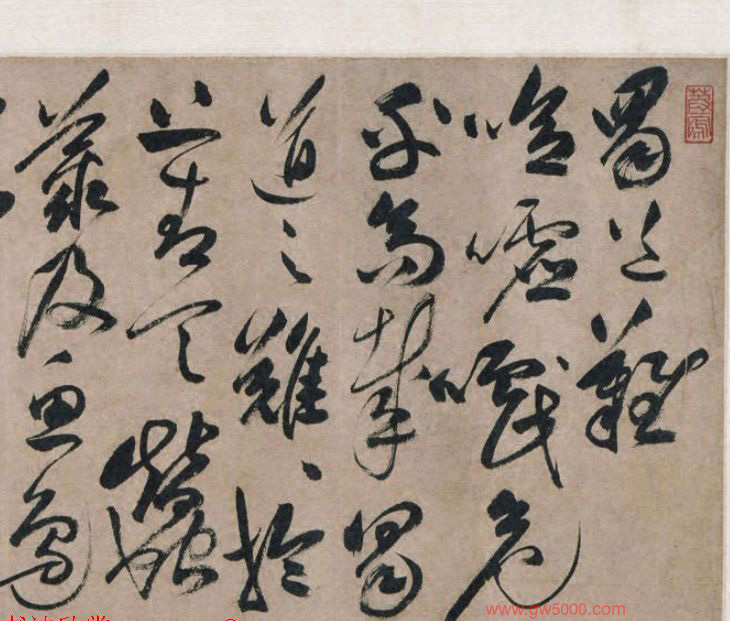 蜀道難
噫嘘嚱危
乎高哉蜀
道之難〻於
上青天蠶
叢及魚鳧
www.gw5000.com